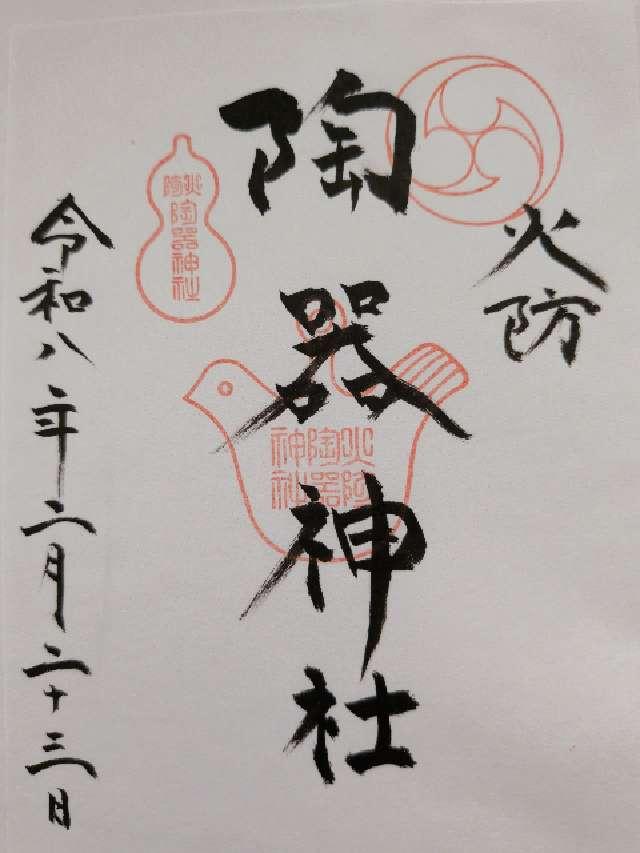 火防
陶器神社
令和八年二月二十三日
火防
陶器神社
火防
陶器
神社